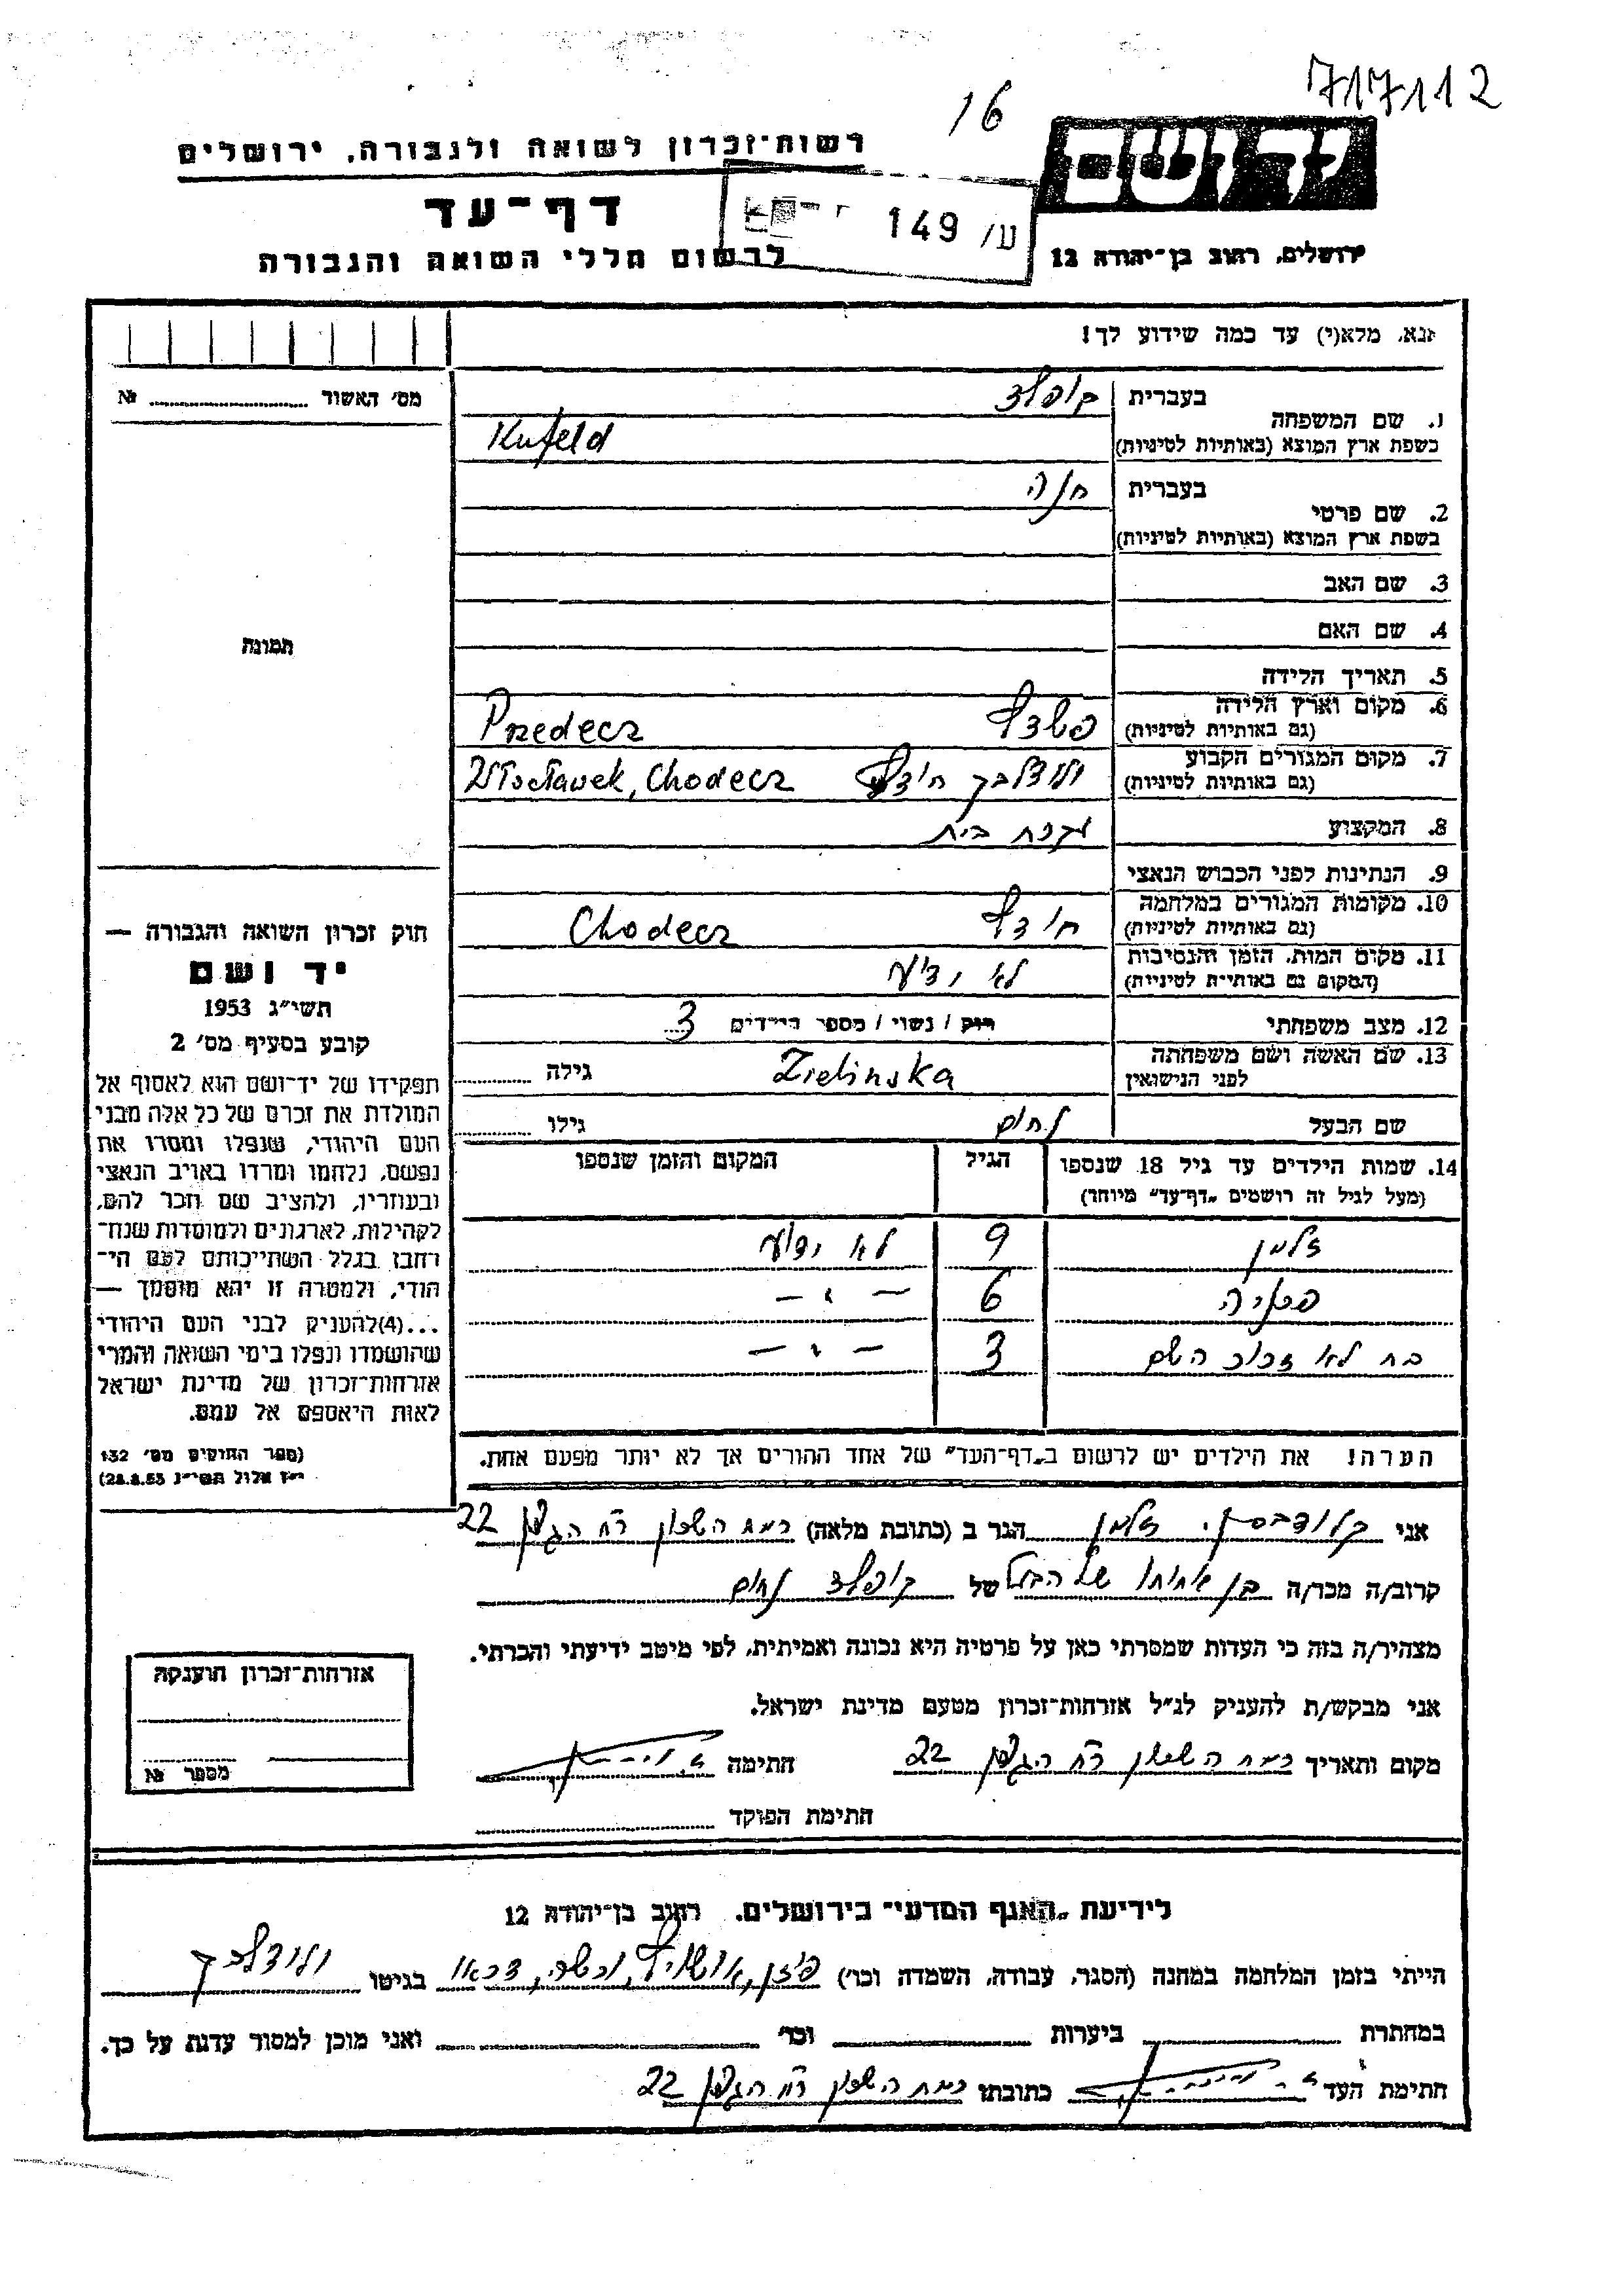 717112
16
רשות־זכרון לשואה ולגבורה, ירושלים
יד ושם
דף־עד
149 /ע
לרשום חללי השואה והגבורה
ירושלים, רחוב בן־יהודה 12
אנא, מלא(י) עד כמה שידוע לך!
מס׳ האשור № 
1. שם המשפחה
בעברית קופלד
בשפת ארץ המוצא (באותיות לטיניות) Kufeld
2. שם פרטי
בעברית חנה
בשפת ארץ המוצא (באותיות לטיניות)
3. שם האב
4. שם האם
תמונה
5. תאריך הלידה
6. מקום וארץ הלידה
(גם באותיות לטיניות) Przedecz
7. מקום המגורים הקבוע
(גם באותיות לטיניות) Włocławek, Chodecz
8. המקצוע עקרת בית
9. הנתינות לפני הכבוש הנאצי
10. מקומות המגורים במלחמה
(גם באותיות לטיניות) Chodecz
11. מקום המות, הזמן והנסיבות
(המקום גם באותיות לטיניות) לא ידוע
12. מצב משפחתי רוק / נשוי / מספר הילדים 3
13. שם האשה ושם משפחתה
לפני הנישואין Zielinska גילה
שם הבעל נחום גילו
14. שמות הילדים עד גיל 18 שנספו
(מעל לגיל זה רושמים „דף־עד” מיוחד)
הגיל
המקום והזמן שנספו
זלמן 9 לא ידוע
6 — " —
בת לא זכור השם 3 — " —
הערה! את הילדים יש לרשום ב„דף־העד” של אחד ההורים אך לא יותר מפעם אחת.
חוק זכרון השואה והגבורה —
יד ושם
תשי״ג 1953
קובע בסעיף מס׳ 2
תפקידו של יד־ושם הוא לאסוף אל
המולדת את זכרם של כל אלה מבני
העם היהודי, שנפלו ומסרו את
נפשם, נלחמו ומרדו באויב הנאצי
ובעוזריו, ולהציב שם וזכר להם,
לקהילות, לארגונים ולמוסדות שנח־
רחבו בגלל השתייכותם לעם הי־
הודי, ולמטרה זו יהא מוסמך —
...(4)להעניק לבני העם היהודי
שהושמדו ונפלו בימי השואה והמרי
אזרחות־זכרון של מדינת ישראל
לאות היאספם אל עמם.
(ספר החוקים מס׳ 132
י״ז אלול תשי״ג 28.8.53)
אני זלמן הגר ב (כתובת מלאה) רמת השרון רח הגפן 22
קרוב/ה מכר/ה בן אחותו של הבעל של קופלד נחום
מצהיר/ה בזה כי העדות שמסרתי כאן על פרטיה היא נכונה ואמיתית, לפי מיטב ידיעתי והכרתי.
אני מבקש/ת להעניק לנ״ל אזרחות־זכרון מטעם מדינת ישראל.
מקום ותאריך רמת השרון רח הגפן 22 חתימה
חתימת הפוקד
אזרחות־זכרון הוענקה
מספר №
לידיעת „האגף המדעי” בירושלים, רחוב בן־יהודה 12
הייתי בזמן המלחמה במחנה (הסגר, עבודה, השמדה וכו׳) פוזנן, אושויץ, ורשה, דכאו בגיטו
במחתרת ביערות וכו׳ ואני מוכן למסור עדות על כך.
חתימת העד כתובתו רמת השרון רח הגפן 22